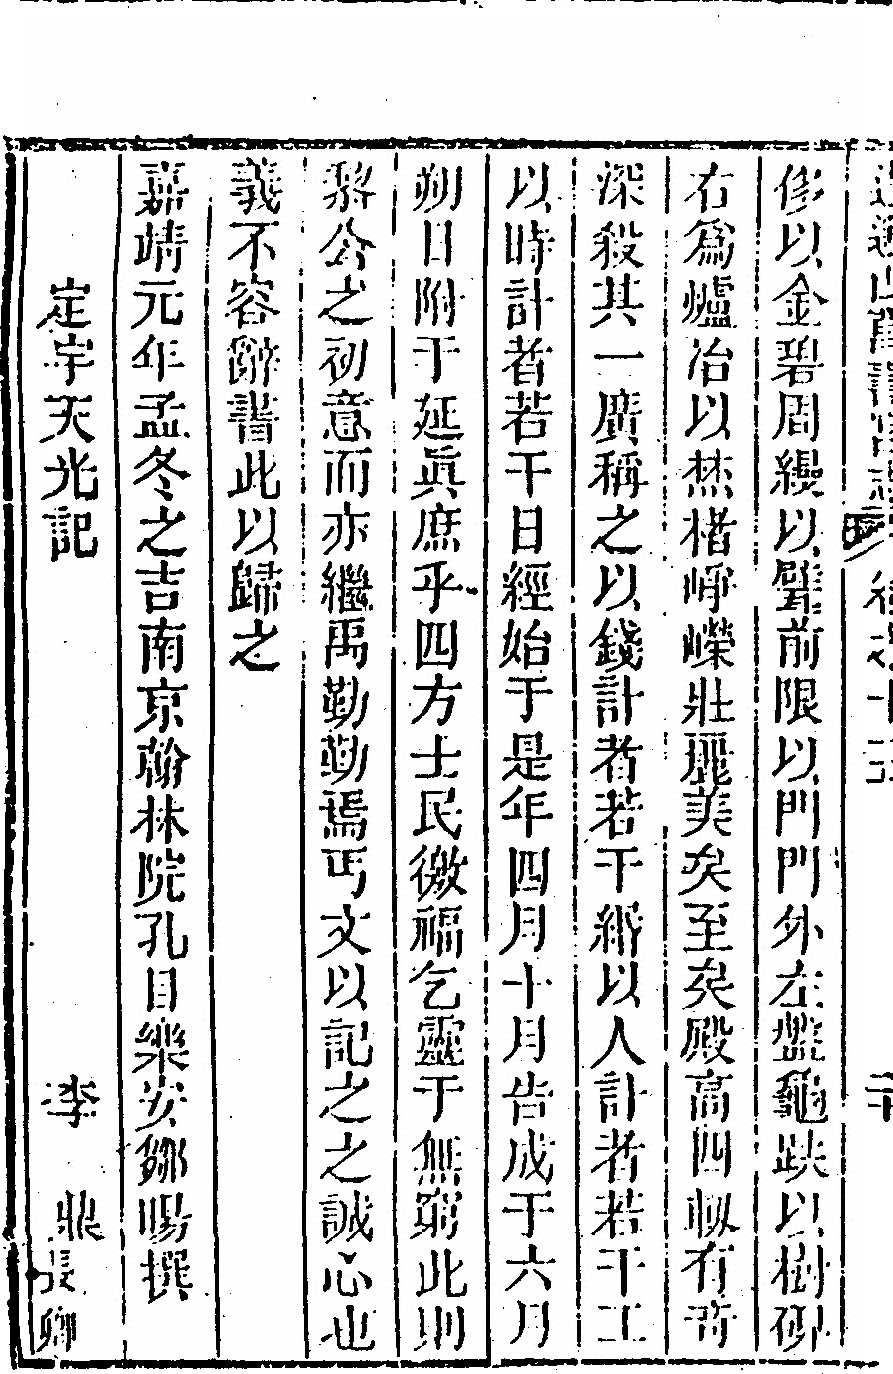 修以金碧周繚以甓前限以門門外左盤龜趺以樹碑
右爲爐冶以焚楮崢嶸壯麗美矣至矣殿高四尋有奇
深殺其一廣稱之以錢計者若干緡以人計者若干工
以時計者若干日經始于是年四月十月告成于六月
朔日附于延眞庶乎四方士民徼福乞靈于無窮此則
黎公之初意而亦繼禹勤勤焉丐文以記之之誠心也
義不容辭書此以歸之
嘉靖元年孟冬之吉南京翰林院孔目樂安鄒暘撰
定宇天光記 李鼎長卿